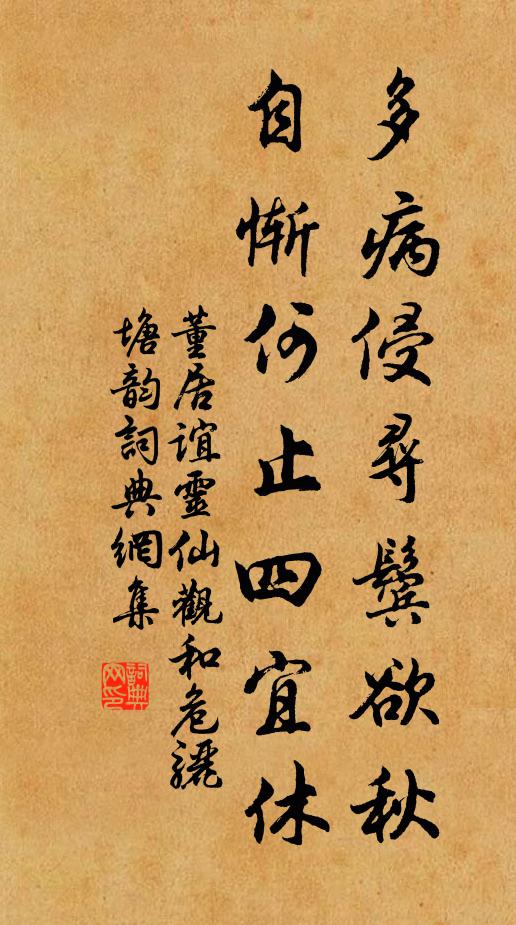 多病侵尋鬢欲秋
自慚何止四宜休
董居誼靈仙觀和危驪
塘韵詞典網集
詞典网印